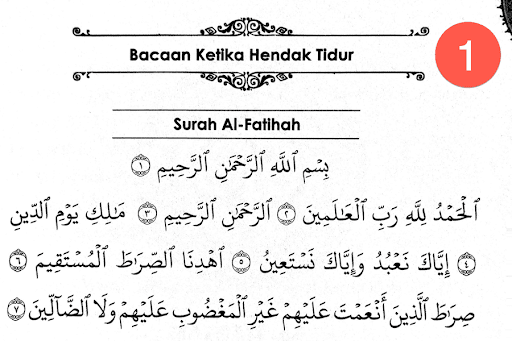 Bacaan Ketika Hendak Tidur
1
Surah Al-Fatihah
بِسْمِ ٱللَّهِ ٱلرَّحْمَٰنِ ٱلرَّحِيمِ ١
ٱلْحَمْدُ لِلَّهِ رَبِّ ٱلْعَٰلَمِينَ ٢ ٱلرَّحْمَٰنِ ٱلرَّحِيمِ ٣ مَٰلِكِ يَوْمِ ٱلدِّينِ
٤ إِيَّاكَ نَعْبُدُ وَإِيَّاكَ نَسْتَعِينُ ٥ ٱهْدِنَا ٱلصِّرَٰطَ ٱلْمُسْتَقِيمَ ٦
صِرَٰطَ ٱلَّذِينَ أَنْعَمْتَ عَلَيْهِمْ غَيْرِ ٱلْمَغْضُوبِ عَلَيْهِمْ وَلَا ٱلضَّآلِّينَ ٧